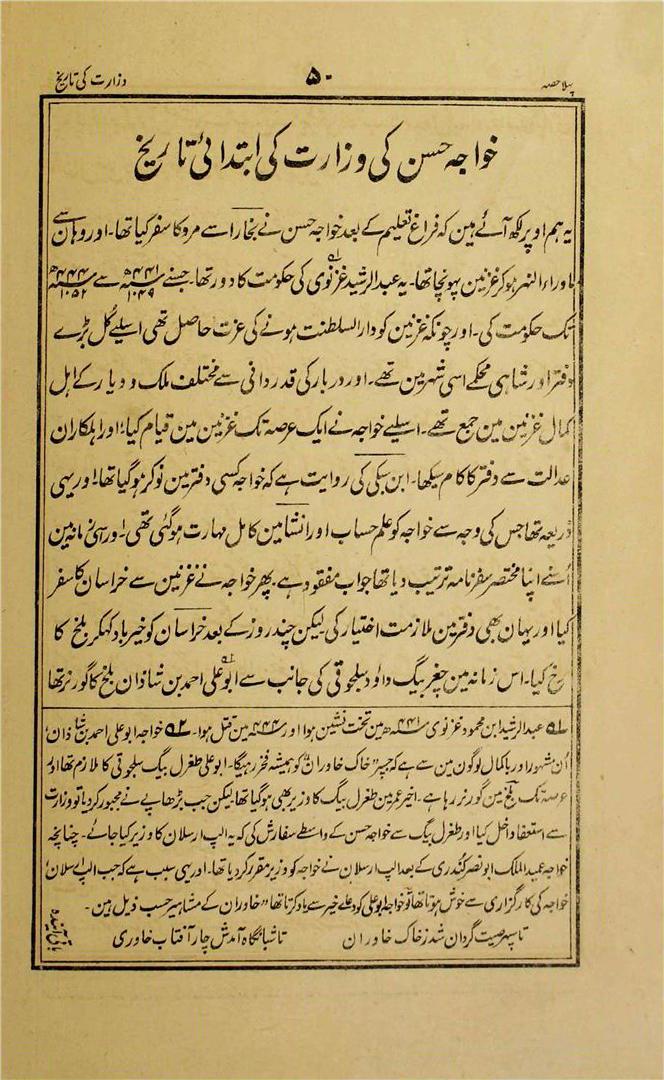 پہلا حصہ ۵۰ وزارت کی تاریخ
خواجہ حسن کی وزارت کی ابتدائی تاریخ
یہ ہم اوپر لکھ آئے ہین کہ فراغ تعلیم کے بعد خواجہ حسن نے بخارا سے مرو کا سفر کیا تھا۔ اور وہان سے
ماوراء النہر ہوکر غزنین پہونچا تھا۔ یہ عبدالرشید غزنوی کی حکومت کا دور تھا۔ جسنے ۴۴۱ھ ۱۰۴۹ء سے ۴۴۴ھ ۱۰۵۲ء
تک حکومت کی۔ اور چونکہ غزنین کو دار السلطنت ہونے کی عزت حاصل تھی اسلیے کُل بڑے
دفتر اور شاہی محکمے اسی شہر مین تھے۔ اور دربار کی قدردانی سے مختلف ملک و دیار کے اہل
کمال غزنین مین جمع تھے۔ اسلیے خواجہ نے ایک عرصہ تک غزنین مین قیام کیا؛ اور اہلکاران
عدالت سے دفتر کا کام سیکھا۔ ابن سبکی کی روایت ہے کہ خواجہ کسی دفتر مین نوکر ہوگیا تھا! اور یہی
ذریعہ تھا جس کی وجہ سے خواجہ کو علم حساب اور انشا مین کامل مہارت ہوگئی تھی۔ اور سی زمانہ مین
اُسنے اپنا مختصر سفرنامہ ترتیب دیا تھا جو اب مفقود ہے۔ پھر خواجہ نے غزنین سے خراسان کا سفر
کیا اور یہان بھی دفتر مین ملازمت اختیار کی لیکن چند روز کے بعد خراسان کو خیرباد کہکر بلخ کا
رخ کیا۔ اس زمانہ مین چغر بیگ داؤد سلجوقی کی جانب سے ابو علی احمد بن شاذان بلخ کا گورنر تھا
۵۱ عبدالرشید ابن محمود غزنوی ۴۴۱ھ مین تخت نشین ہوا اور ۴۴۴ مین قتل ہوا۔ ۵۲ خواجہ ابو علی احمد بن شاذان؛
اُن مشہور اور با کمال لوگون مین سے ہے کہ جنپر "خاک خاوران" کو ہمیشہ فخر رہیگا۔ ابو علی طغرل بیگ سلجوقی کا ملازم تھا اور
عرصہ تک بلخ مین گورنر رہا ہے۔ اخیر عمر مین طغرل بیگ کا وزیر بھی ہوگیا تھا لیکن جب بڑھاپے نے مجبور کردیا تو وزارت
سے استعفا داخل کیا اور طغرل بیگ سے خواجہ حسن کے واسطے سفارش کی کہ یہ الپ ارسلان کا وزیر کیا جائے۔ چنانچہ
خواجہ عمید الملک ابو نصر کُندری کے بعد الپ ارسلان نے خواجہ کو وزیر مقرر کردیا تھا۔ اور یہی سبب ہے کہ جب الپ ارسلان
خواجہ کی کارگزاری سے خوش ہوتا تھا تو خواجہ ابو علی کو دعاے خیر سے یاد کرتا تھا "خاوران کے مشاہیر حسب ذیل ہین۔
تا سپہر صیت گردان شد زخاک خاوران تا شبانگاہ آمدش چار آفتاب خاوری
باقی آیندہ